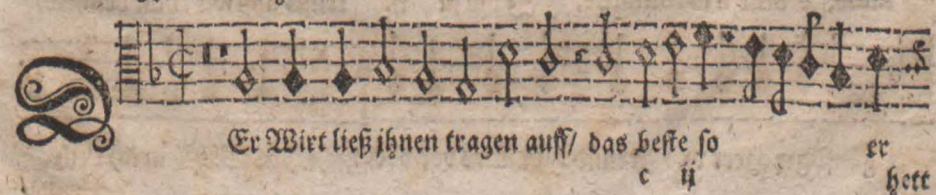 DEr Wirt ließ jhnen tragen auff/ das beste so er
c ij hett